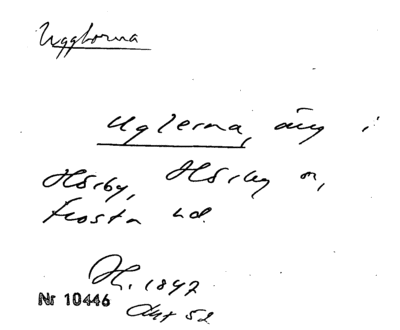 Ugglorna
Uglerna, äng i
Hörby, Hörby sn,
Frosta hd.
H. 1847
Akt 52
Nr 10446